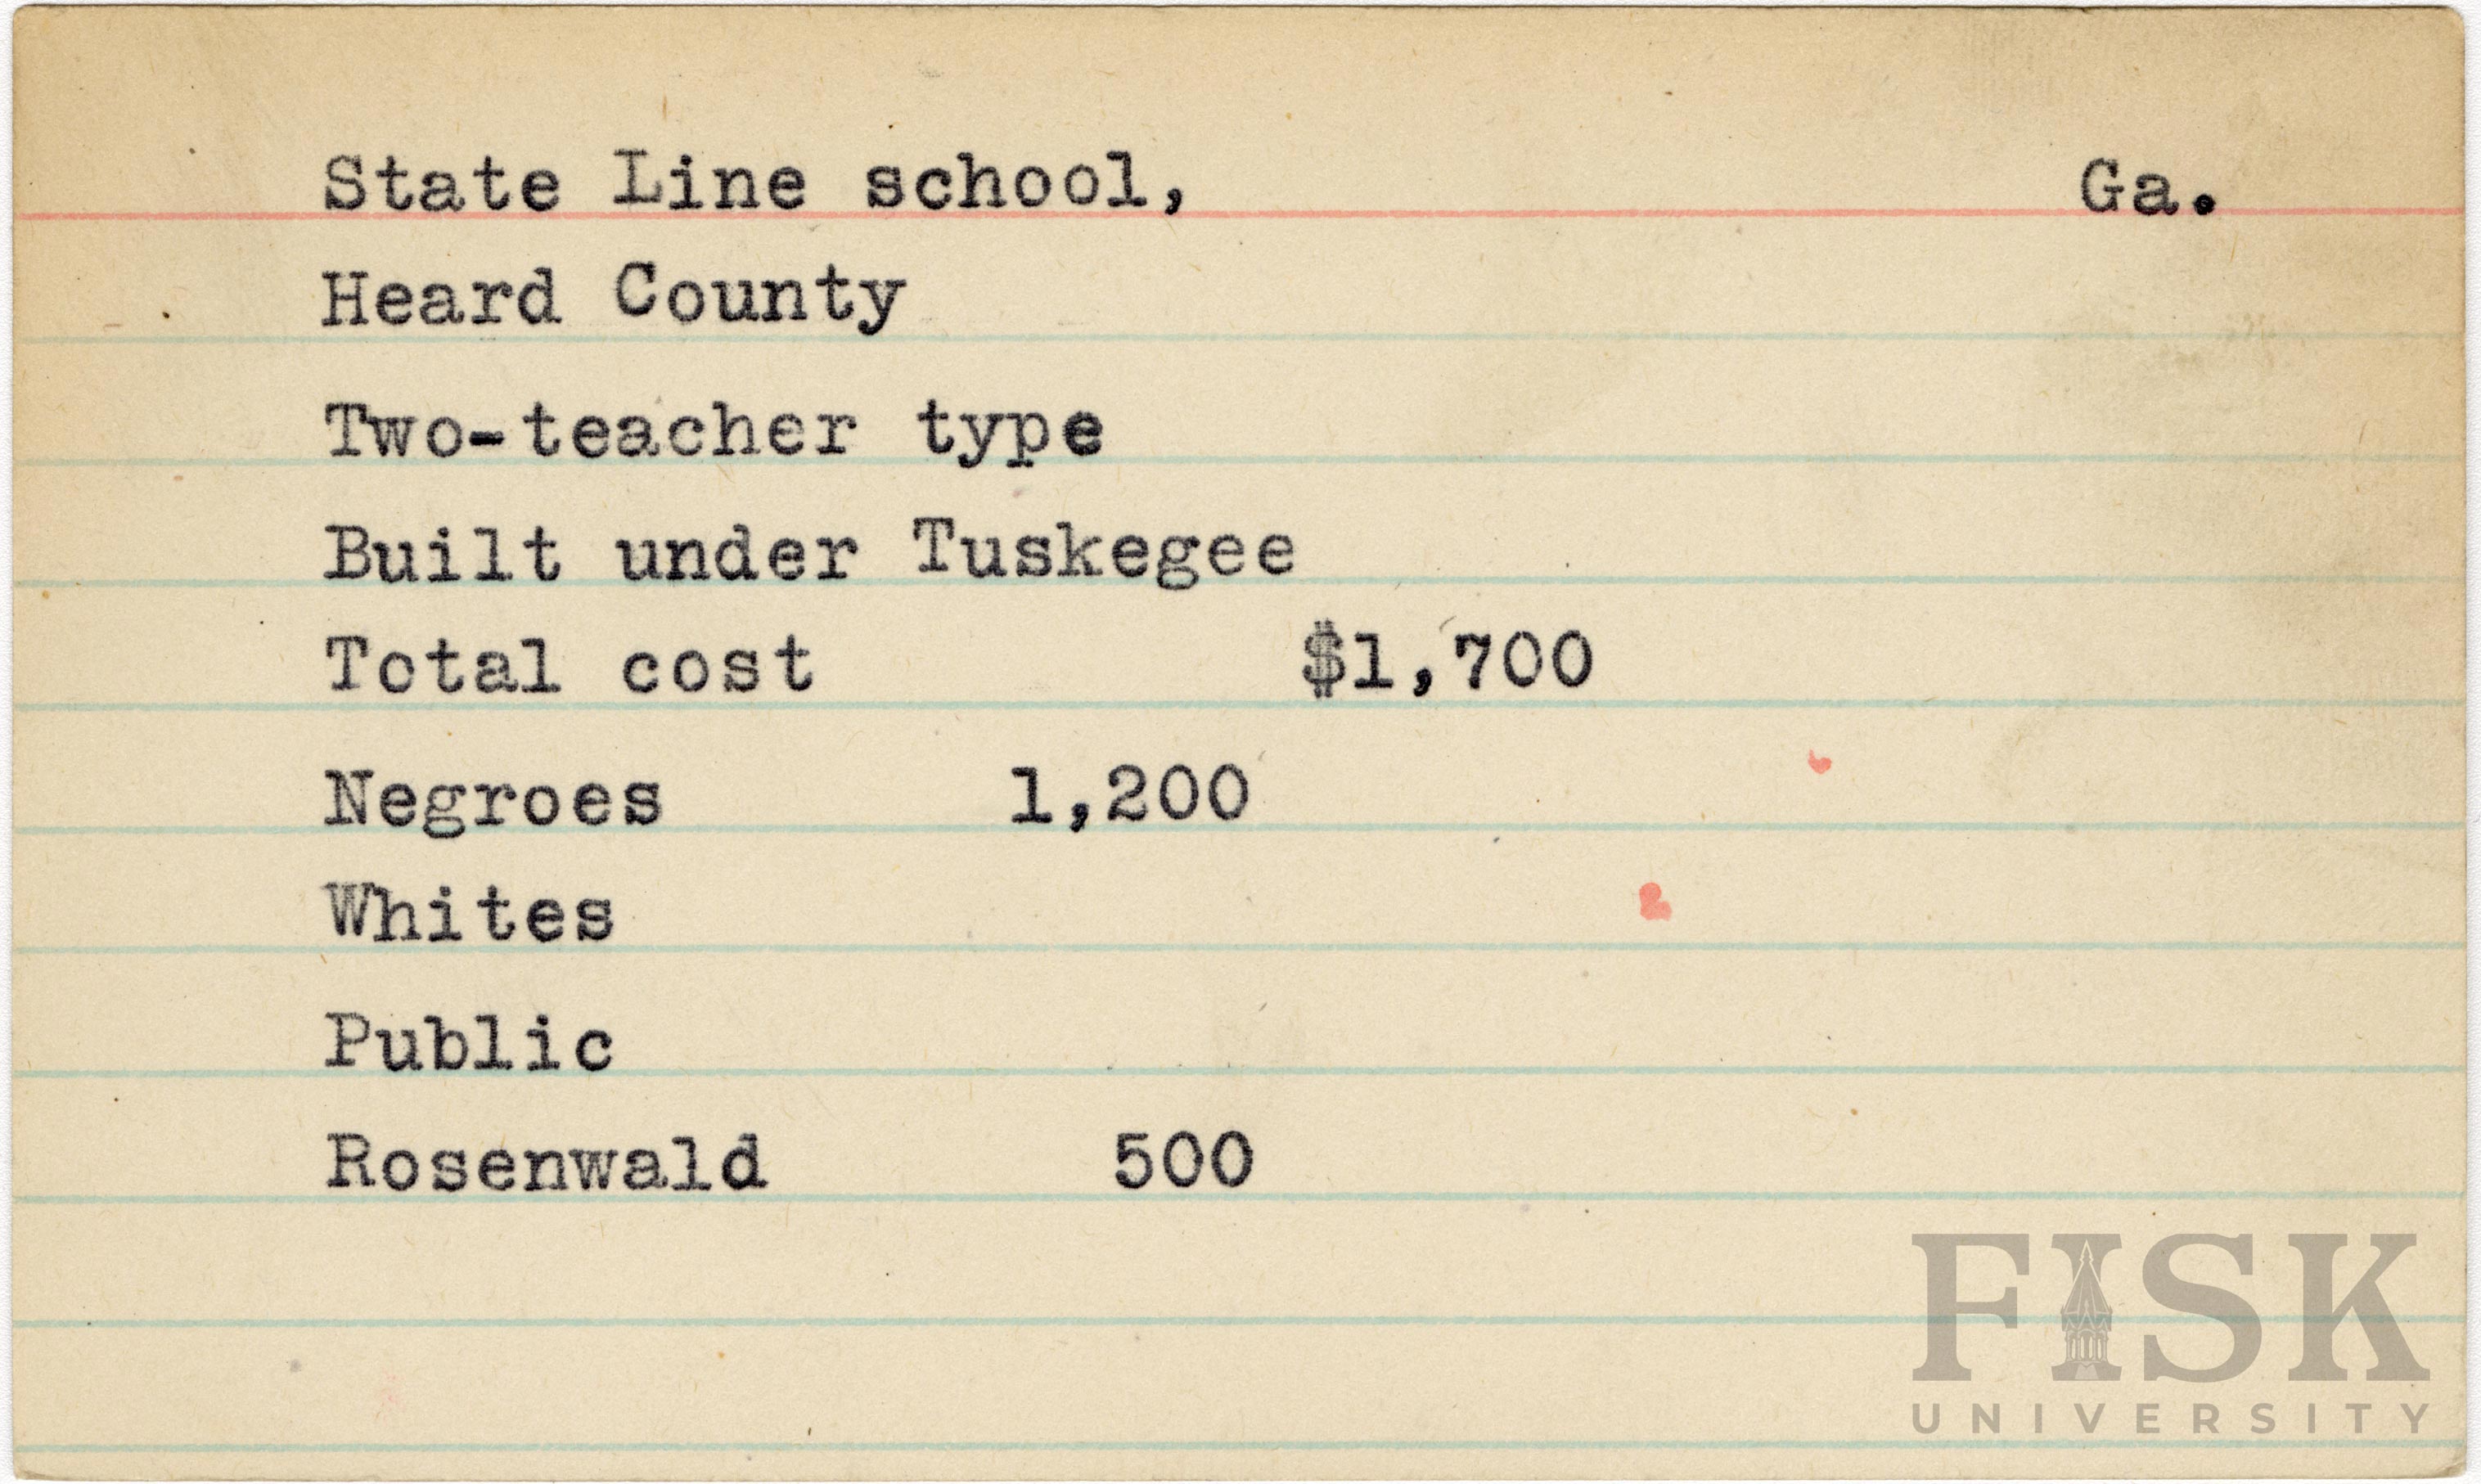 State Line school, Ga.
Heard County
Two-teacher type
Built under Tuskegee
Total cost $1,700
Negroes 1,200
Whites
Public
Rosenwald 500
FISK
UNIVERSITY